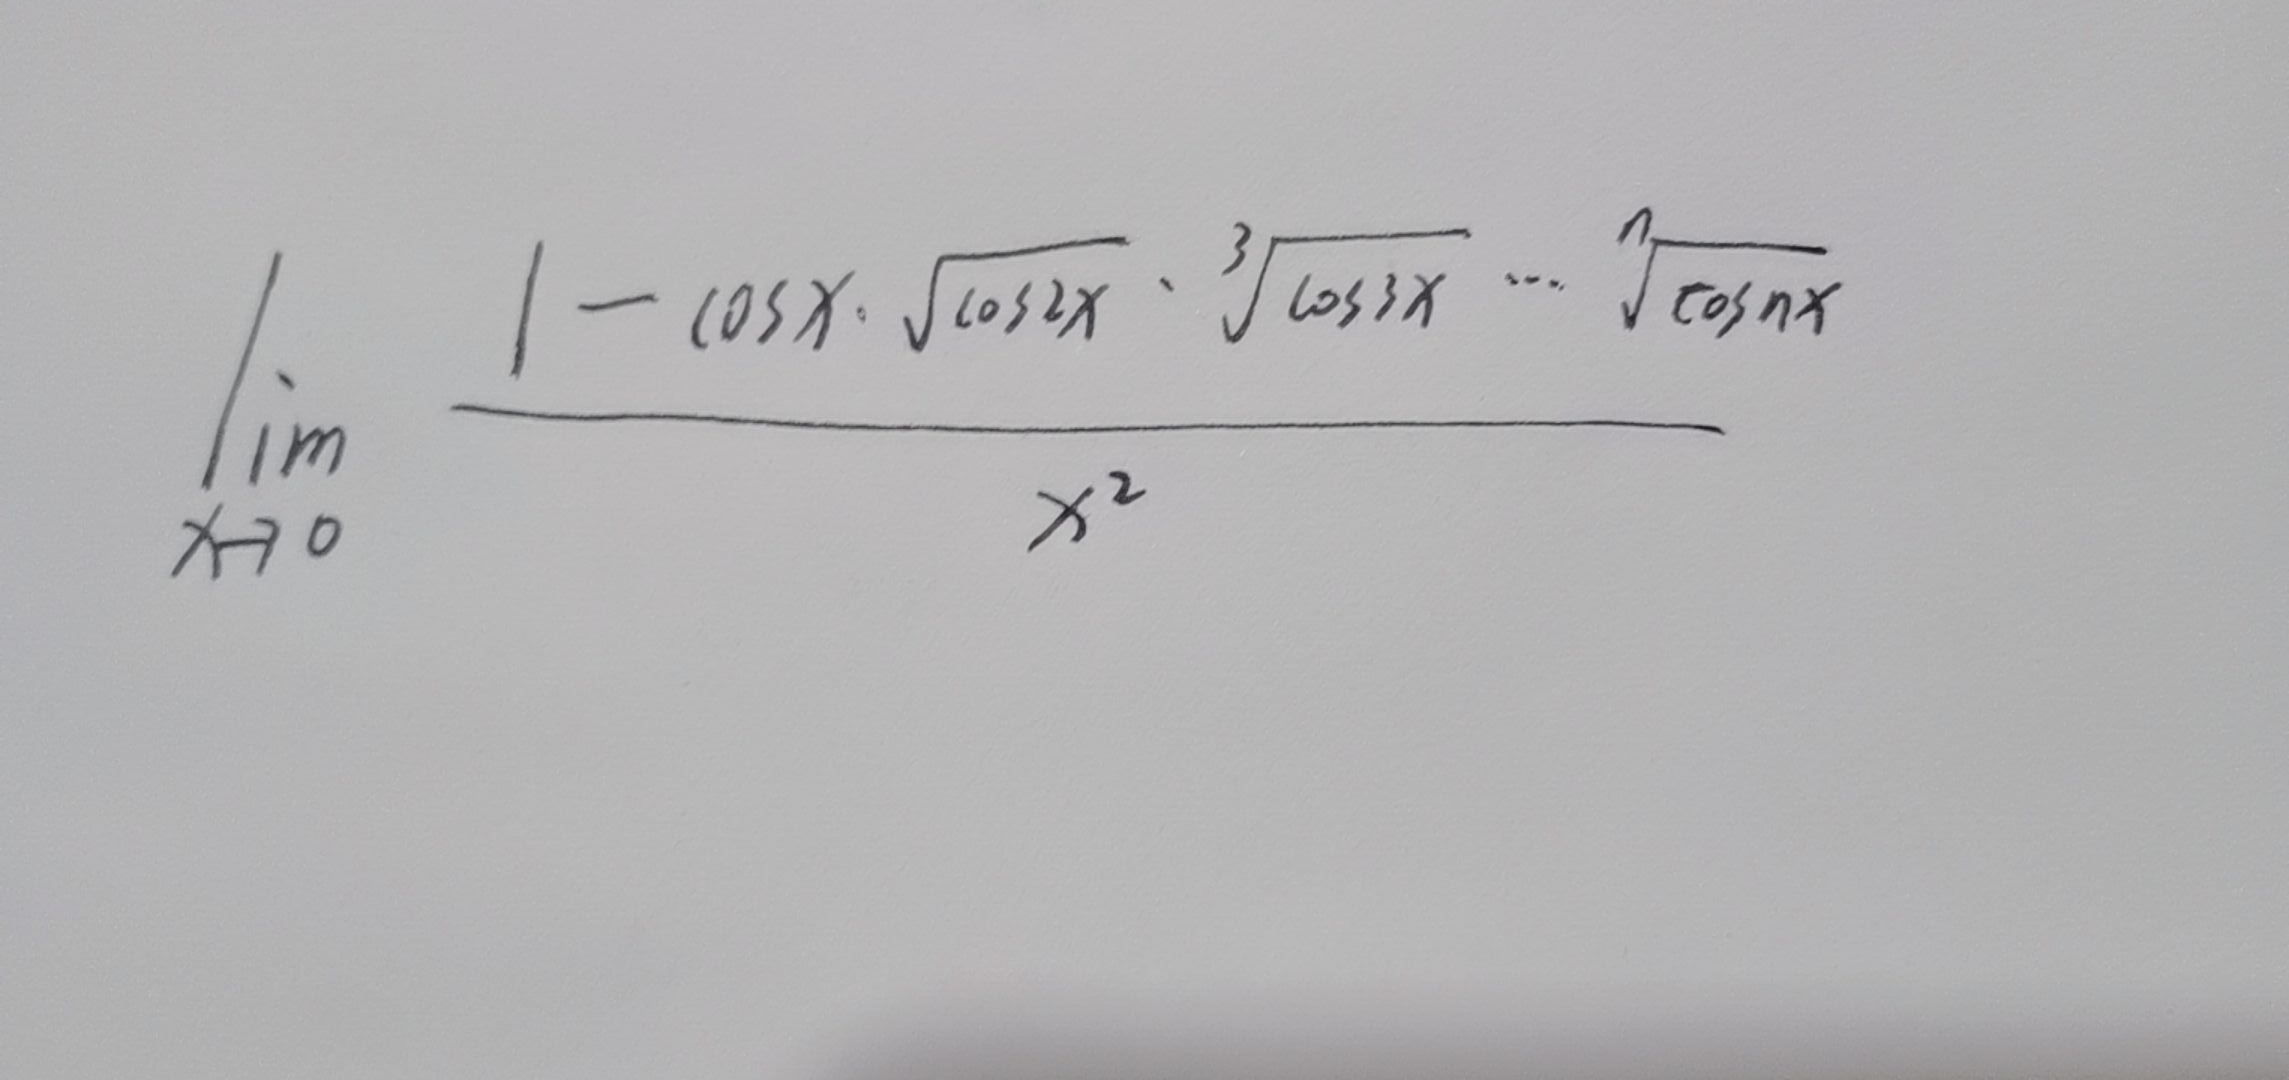 lim x→0 (1 − cosx · √cos2x · ³√cos3x ··· ⁿ√cosnx) / x²